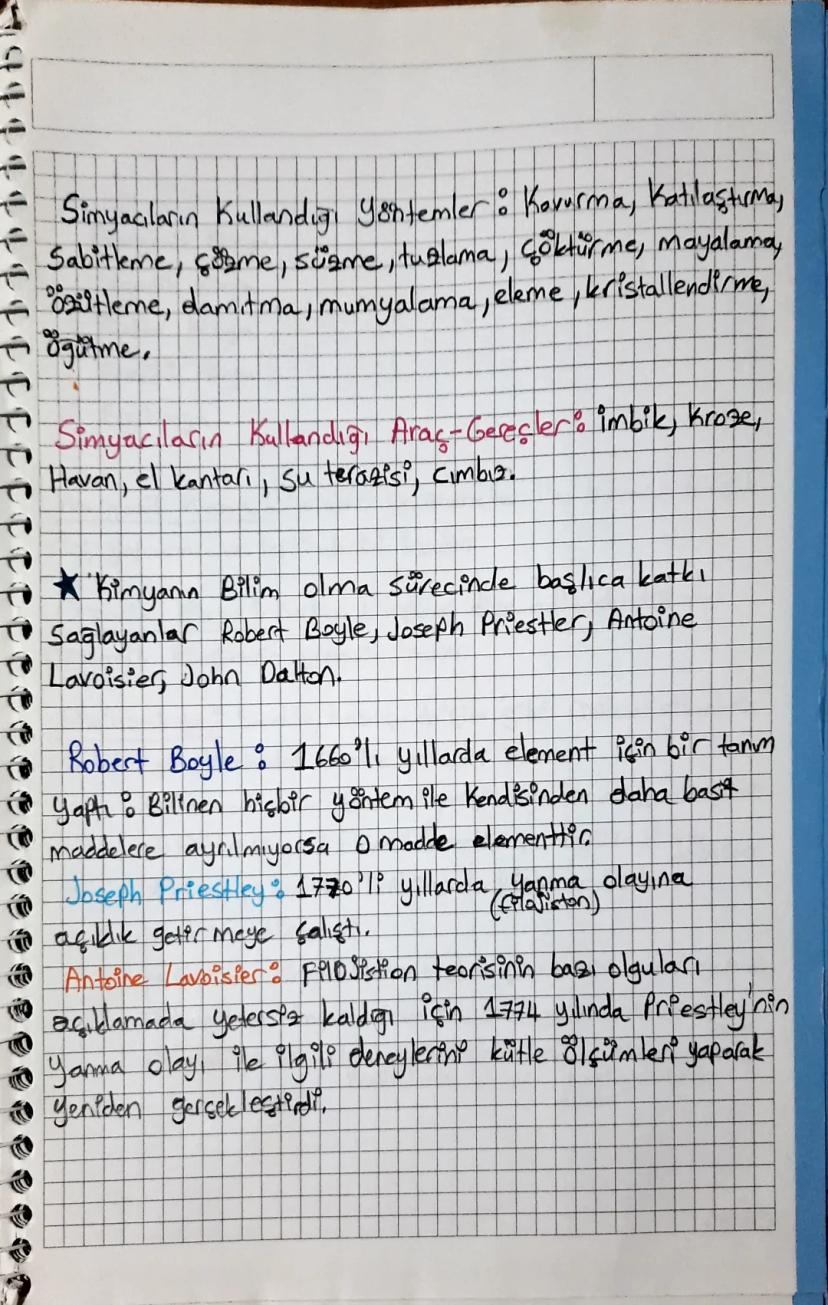 Simyacıların Kullandığı Yöntemler: Kavurma, Katılaştırma,
Sabitleme, çözme, süzme, tuzlama, Çöktürme, mayalama,
Özütleme, damıtma, mumyalama, eleme, kristallendirme,
Öğütme.
Simyacıların Kullandığı Araç-Gereçler: imbik, Kroze,
Havan, el kantarı, su terazisi, cımbız.
★ Kimyanın Bilim olma sürecinde başlıca katkı
Sağlayanlar Robert Boyle, Joseph Priestler, Antoine
Lavoisier, John Dalton.
Robert Boyle: 1660'lı yıllarda element için bir tanım
yaptı: Bilinen hiçbir yöntem ile Kendisinden daha basit
maddelere ayrılmıyorsa o madde elementtir.
Joseph Priestley: 1770'li yıllarda yanma olayına
(filojiston)
açıklık getirmeye çalıştı.
Antoine Lavoisier: Filojistion teorisinin bazı olguları
açıklamada yetersiz kaldığı için 1774 yılında Priestley'nin
Yanma olayı ile ilgili deneylerini kütle ölçümleri yaparak
yeniden gerçekleştirdi.